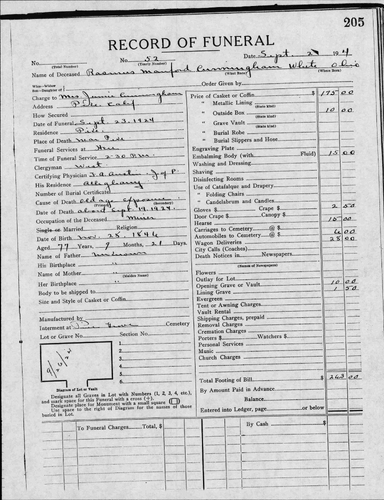 205
RECORD OF FUNERAL
No. No. 52 Date Sept. 1924
(Total Number) (Yearly Number)
Name of Deceased Rasmus Manford Cunningham White Ohio
(What Race) (Where Born)
Charge to Mrs. Jennie Cunningham
Address Pike Calif
How Secured
Date of Funeral Sept 23, 1924
Residence Pike
Place of Death Near Pike
Funeral Services at Here
Time of Funeral Service 2:30 P.M.
Clergyman West
Certifying Physician J of P
His Residence Alleghany
Number of Burial Certificate
Cause of Death old age exposure
Date of Death about Sept 19, 1924
Occupation of the Deceased Miner
Single or Married Religion
Date of Birth Nov. 28 1846
Aged 77 Years, 9 Months, 21 Days.
Name of Father Unknown
His Birthplace "
Name of Mother "
(Maiden Name)
Her Birthplace "
Body to be shipped to
Size and Style of Casket or Coffin
Manufactured by
Interment at Cemetery
Lot or Grave No. Section No.
1.
2.
3.
4.
5.
6.
Diagram of Lot or Vault
Designate all Graves in Lot with Numbers (1, 2, 3, 4, etc.),
and mark space for this Funeral with a cross (+).
Designate place for Monument with a small square
Use space to the right of Diagram for the names of those
buried in Lot.
Price of Casket or Coffin $175 00
" Metallic Lining
(State Kind)
" Outside Box 10 00
(State Kind)
" Grave Vault
(State Kind)
" Burial Robe
(State Kind)
" Burial Slippers and Hose
Engraving Plate
Embalming Body (with Fluid) 15 00
Washing and Dressing
Shaving
Disinfecting Rooms
Use of Catafalque and Drapery
" Folding Chairs
" Candelabrum and Candles
Gloves $ Crape $ 2 50
Door Crape $ Canopy $
Hearse 15 00
Carriages to Cemetery @ $
Automobiles to Cemetery @ $ 6 00
Wagon Deliveries 25 00
City Calls (Coaches)
Death Notices in Newspapers
(Names of Newspapers)
Flowers
Outlay for Lot
Opening Grave or Vault 10 00
Lining Grave 1 50
Evergreen
Tent or Awning Charges
Vault Rental
Shipping Charges, prepaid
Removal Charges
Cremation Charges
Porters $ Watchers $
Personal Services
Music
Church Charges
Total Footing of Bill $ 263 00
By Amount Paid in Advance
Balance
Entered into Ledger, page or below
To Funeral Charges, Total $
By Cash $